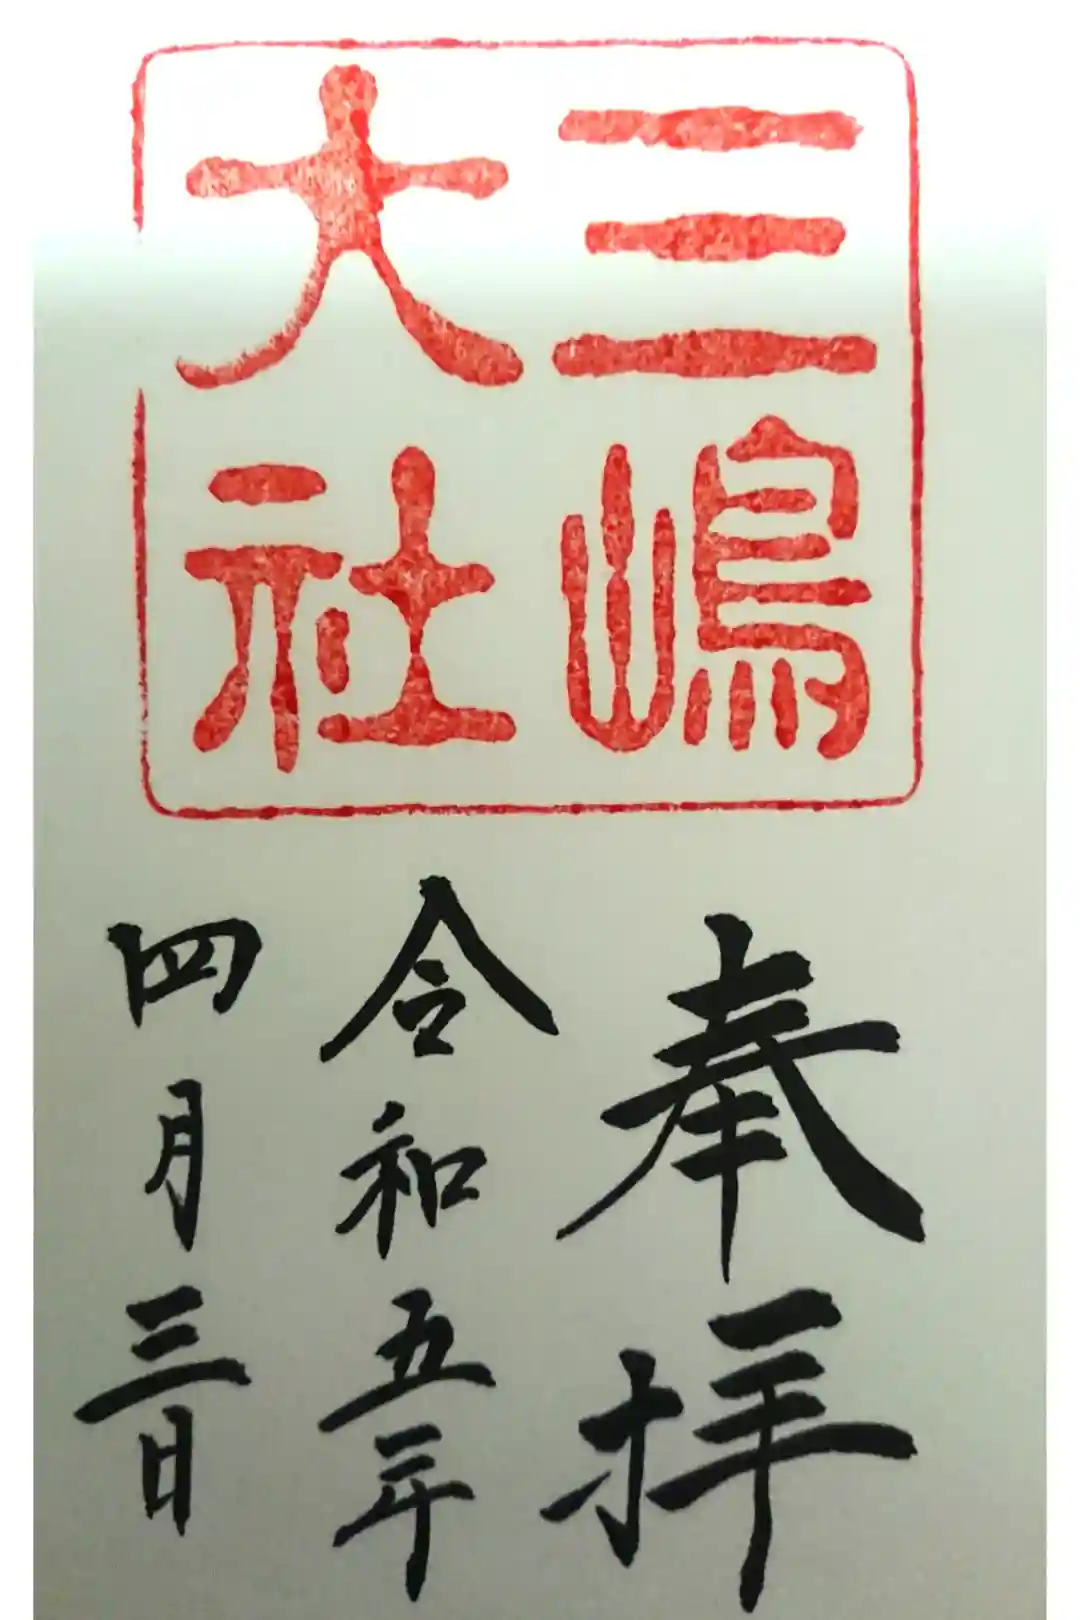 三嶋
大社
奉拝
令和五年
四月三日